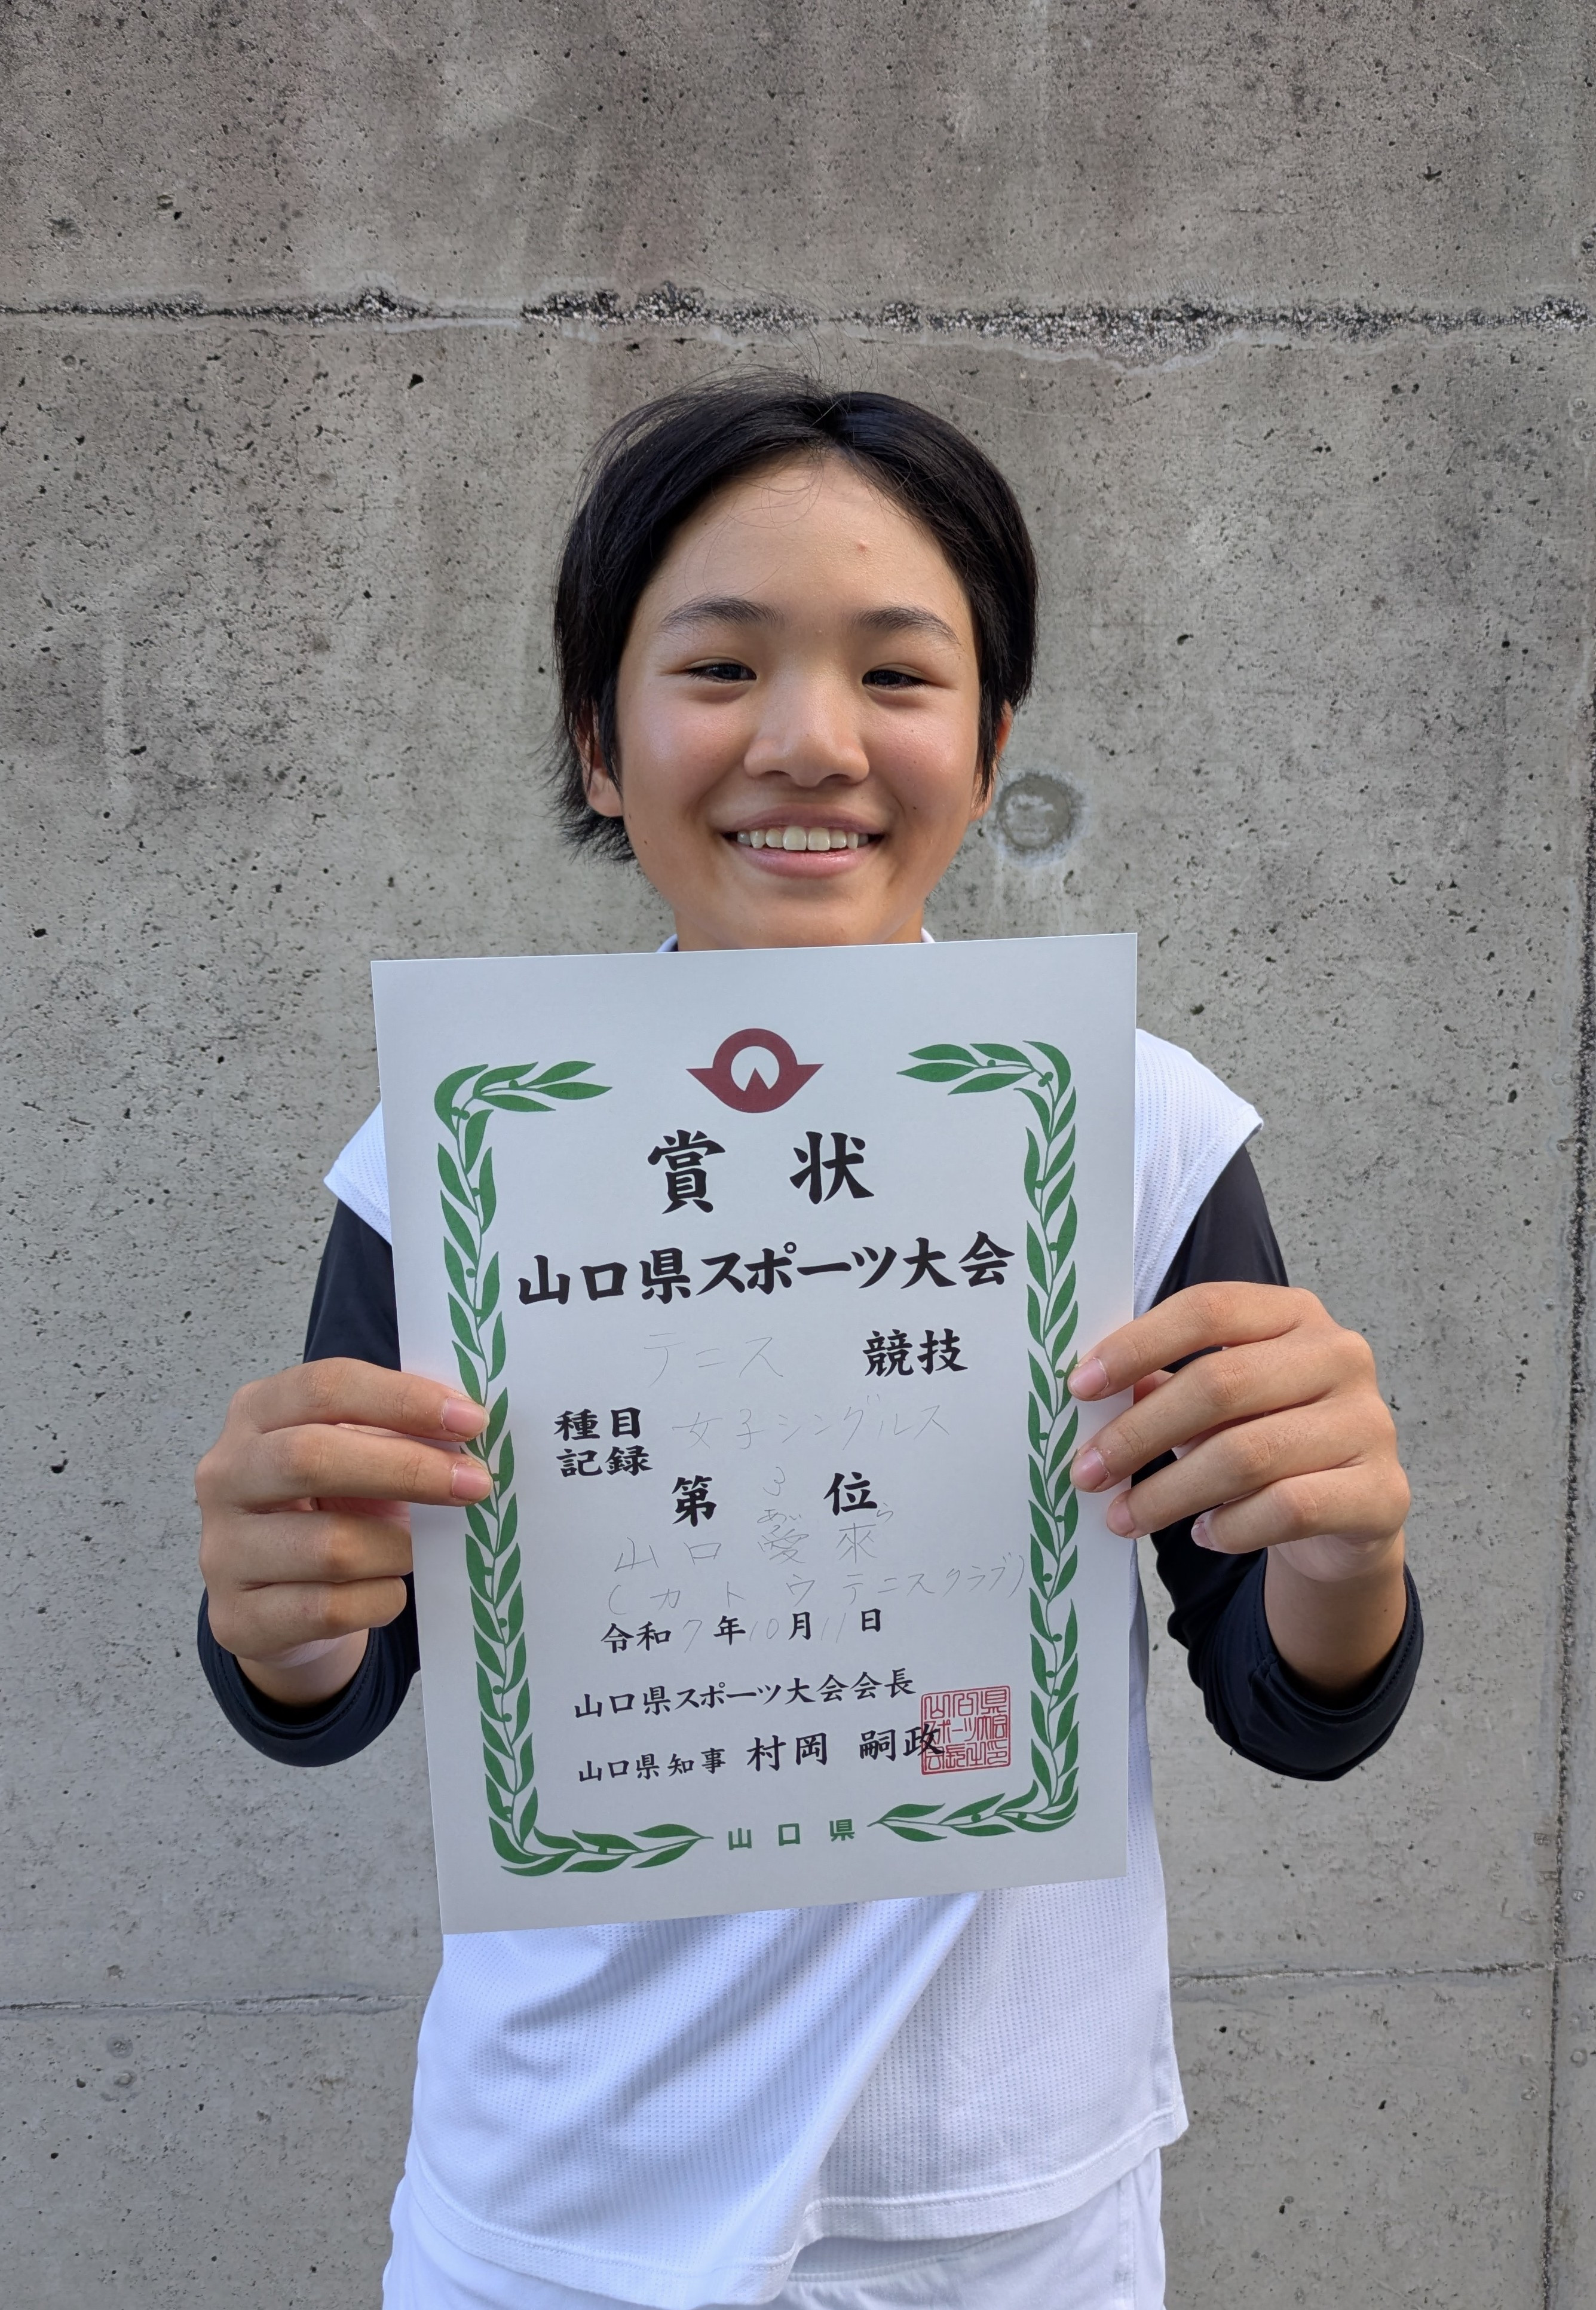 賞状
山口県スポーツ大会
テニス 競技
種目 女子シングルス
記録
第 3 位
あい ら
山口 愛來
(カトウテニスクラブ)
令和7年10月11日
山口県スポーツ大会会長
山口県知事 村岡 嗣政
山口県